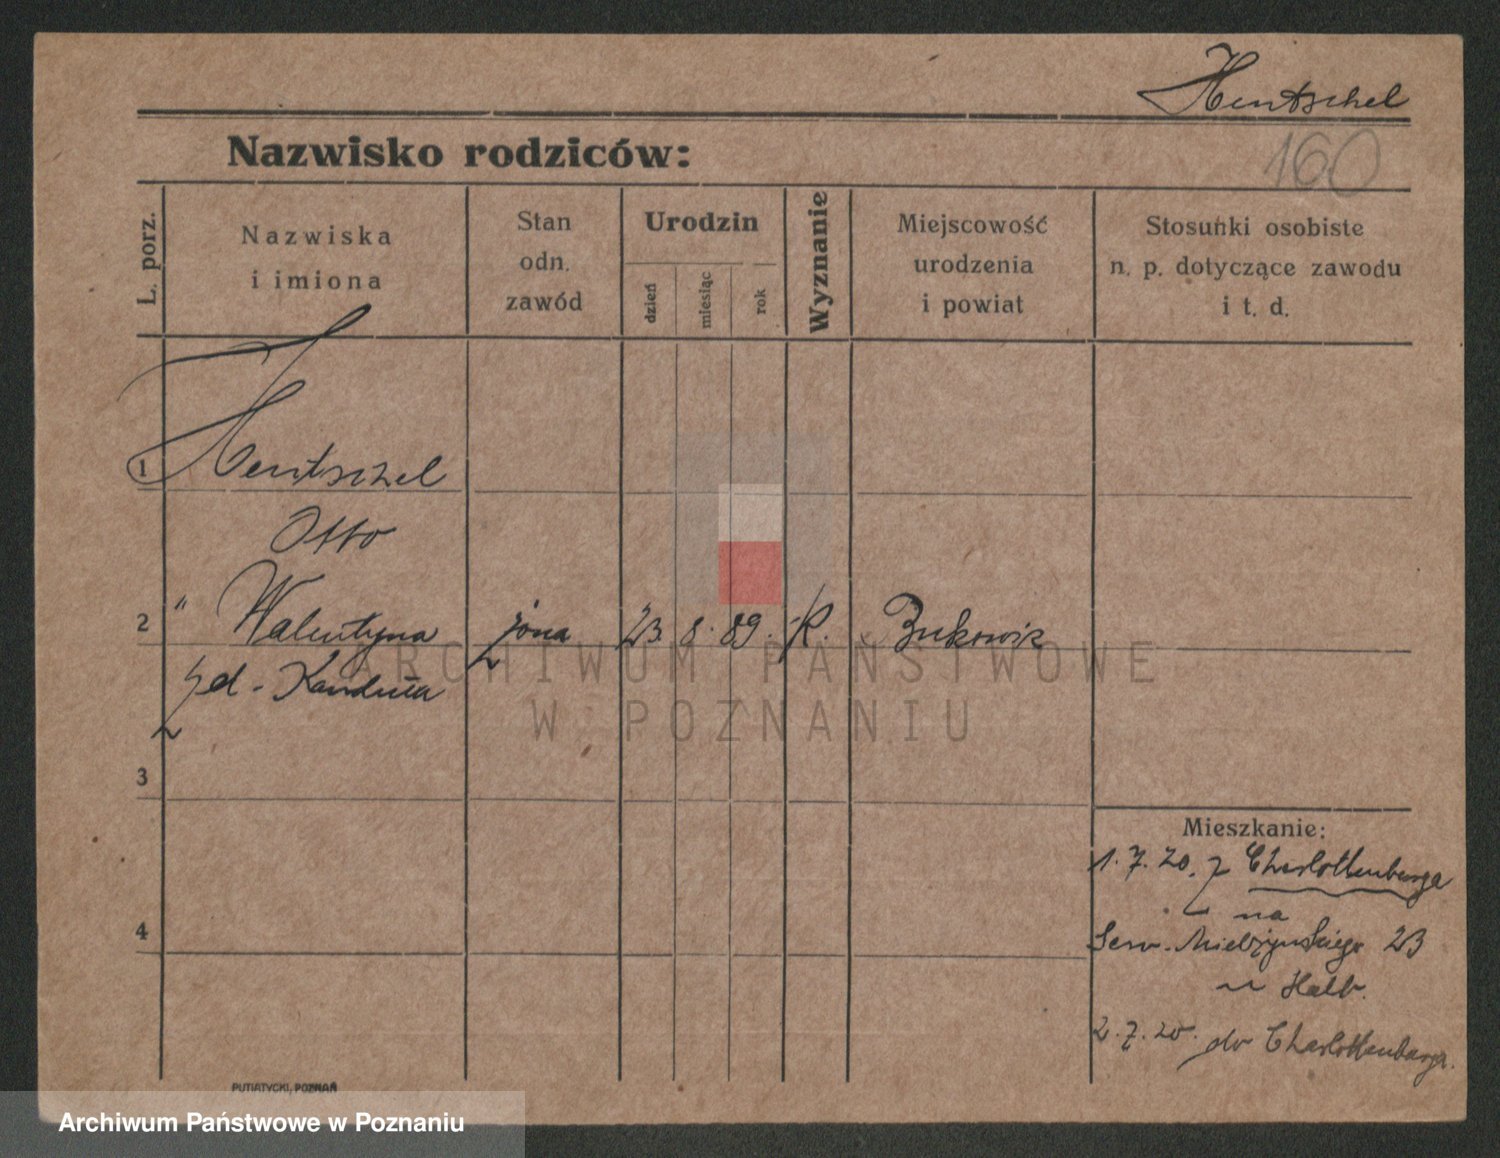 Hentschel
160
Nazwisko rodziców:
L. porz.
Nazwiska
i imiona
Stan
odn.
zawód
Urodzin
dzień
miesiąc
rok
Wyznanie
Miejscowość
urodzenia
i powiat
Stosunki osobiste
n. p. dotyczące zawodu
i t. d.
1 Hentschel
Otto
2 " Walentyna żona 23. 8. 89. K. Bukowiec
3
4
Mieszkanie:
1. 7. 20. z Charlottenburga
na
Sew. Mielżyńskiego 23
u Halb.
2. 7. 20. do Charlottenburga.
PUTIATYCKI, POZNAŃ
ARCHIWUM PAŃSTWOWE
W POZNANIU
Archiwum Państwowe w Poznaniu